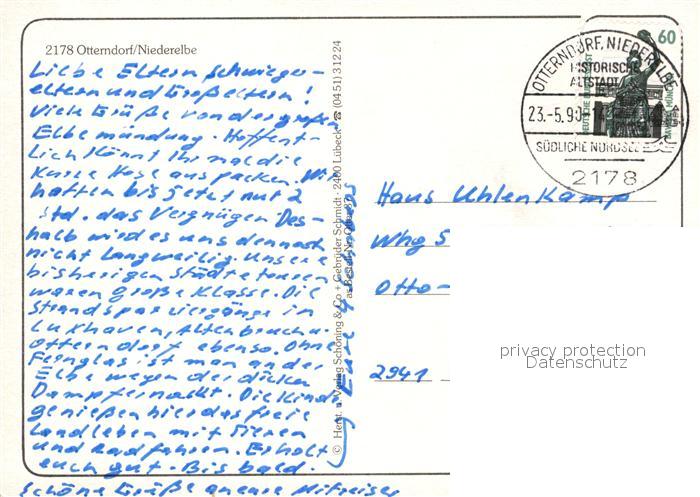 2178 Otterndorf/Niederelbe
Liebe Eltern, Schwieger-
eltern und Großeltern!
Viele Grüße von der großen
Elbemündung. Hoffent-
lich könnt Ihr mal die
kurze Hose auspacken. Wir
hatten bis jetzt nur 2
Std. das Vergnügen. Des-
halb wird es uns dennoch
nicht langweilig. Unsere
bisherigen Städtetouren
waren große Klasse. Die
Strandspaziergänge in
Cuxhaven, Altenbruch u.
Otterndorf ebenso. Ohne
Fernglas ist man an der
Elbe wegen der dicken
Dampfer nackt. Die Kinder
genießen hier das freie
Landleben mit Tieren
und Radfahren. Erholt
euch gut. Bis bald.
Schöne Grüße an eure Mitreiser
Eure 4
© Herst. u. Verlag Schöning & Co + Gebrüder Schmidt · 2400 Lübeck ☎ (0451) 3 12 24
OTTERNDORF, NIEDERELBE
HISTORISCHE
ALTSTADT
23.-5.90
SÜDLICHE NORDSEE
2178
60
DEUTSCHE BUNDESPOST
BAVARIA MÜNCHEN
Hans Uhlenkamp
Whg 5
Otto-
2941
privacy protection
Datenschutz